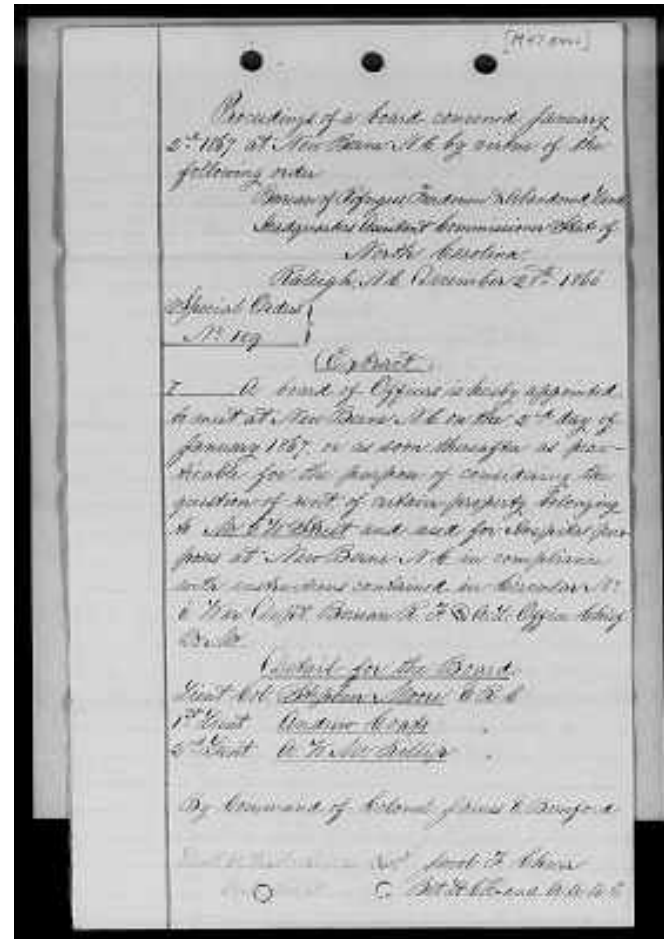 Proceedings of a board convened January
2nd 1867 at New Berne N.C. by virtue of the
following order
Bureau of Refugees Freedmen & Abandoned Lands
Headquarters Assistant Commissioner State of
North Carolina
Raleigh, N.C. December 27th 1866
Special Orders
No 189
(Extract)
I A board of Officers is hereby appointed
to meet at New Berne N.C. on the 2nd day of
January 1867, or as soon thereafter as prac-
ticable for the purpose of considering the
question of rent of certain property belonging
to and used for Hospital pur-
poses at New Berne N.C. in compliance
with instructions contained in Circular No
6 War Dept. Bureau R. F. & A. L. Office Chief
Detail for the Board
Lieut Col Stephen Moore
1st Lieut Andrew Coats
2nd Lieut A. W.
By Command of Colonel James V. Bomford
Jacob F. Chur
Bt. Lt. Col. and A.A.A.G.